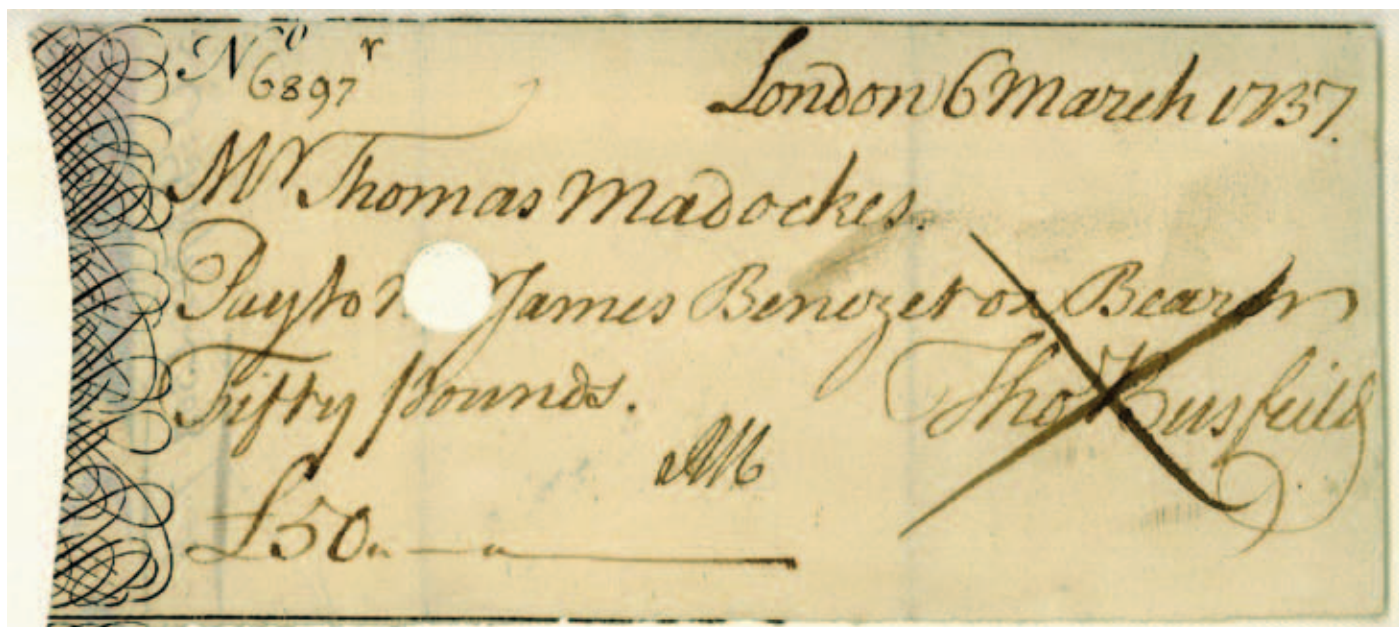 No 6897 r
London 6 March 1737.
Mr Thomas Madockes.
Pay to James Benezet or Bearer
Fifty Pounds.
Tho Busfeild
£50